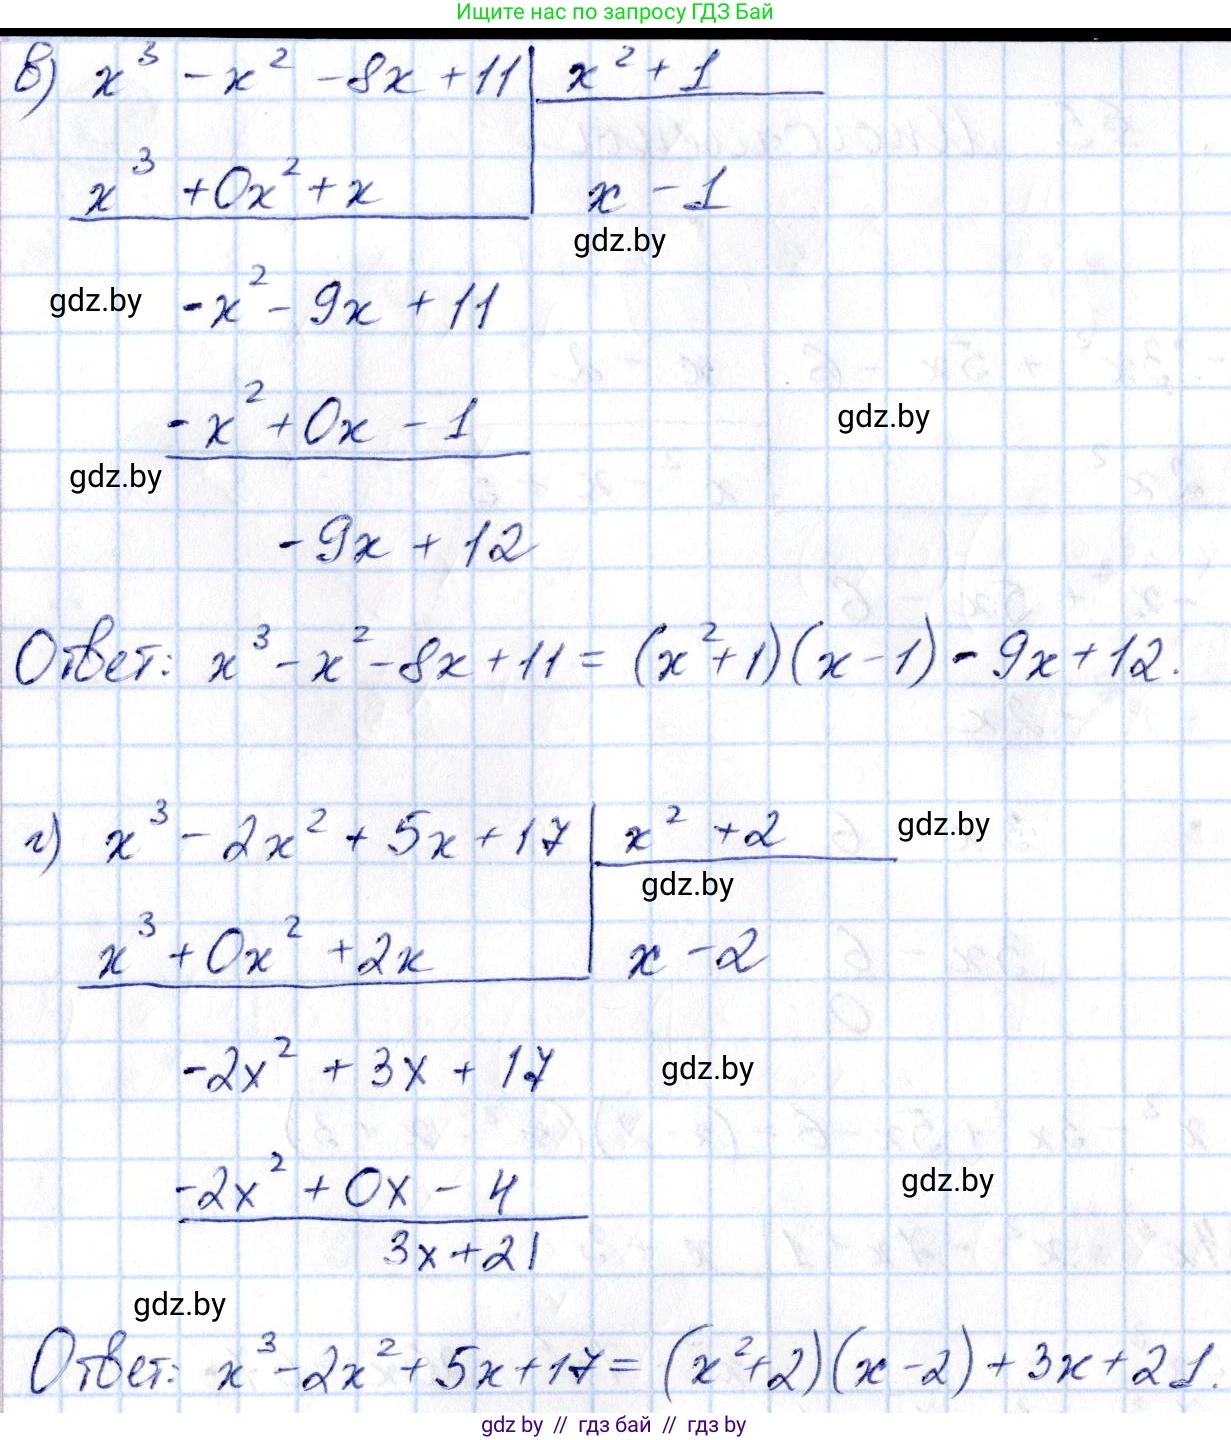 Ищите нас по запросу ГДЗ Бай
в) x³ - x² - 8x + 11 | x² + 1
x³ + 0x² + x | x - 1
gdz.by
gdz.by
-x² - 9x + 11
-x² + 0x - 1
gdz.by
gdz.by
-9x + 12
Ответ: x³ - x² - 8x + 11 = (x² + 1)(x - 1) - 9x + 12.
г) x³ - 2x² + 5x + 17 | x² + 2
gdz.by
gdz.by
x³ + 0x² + 2x | x - 2
-2x² + 3x + 17
gdz.by
-2x² + 0x - 4
gdz.by
3x + 21
gdz.by
Ответ: x³ - 2x² + 5x + 17 = (x² + 2)(x - 2) + 3x + 21.
gdz by // гдз бай // гдз by